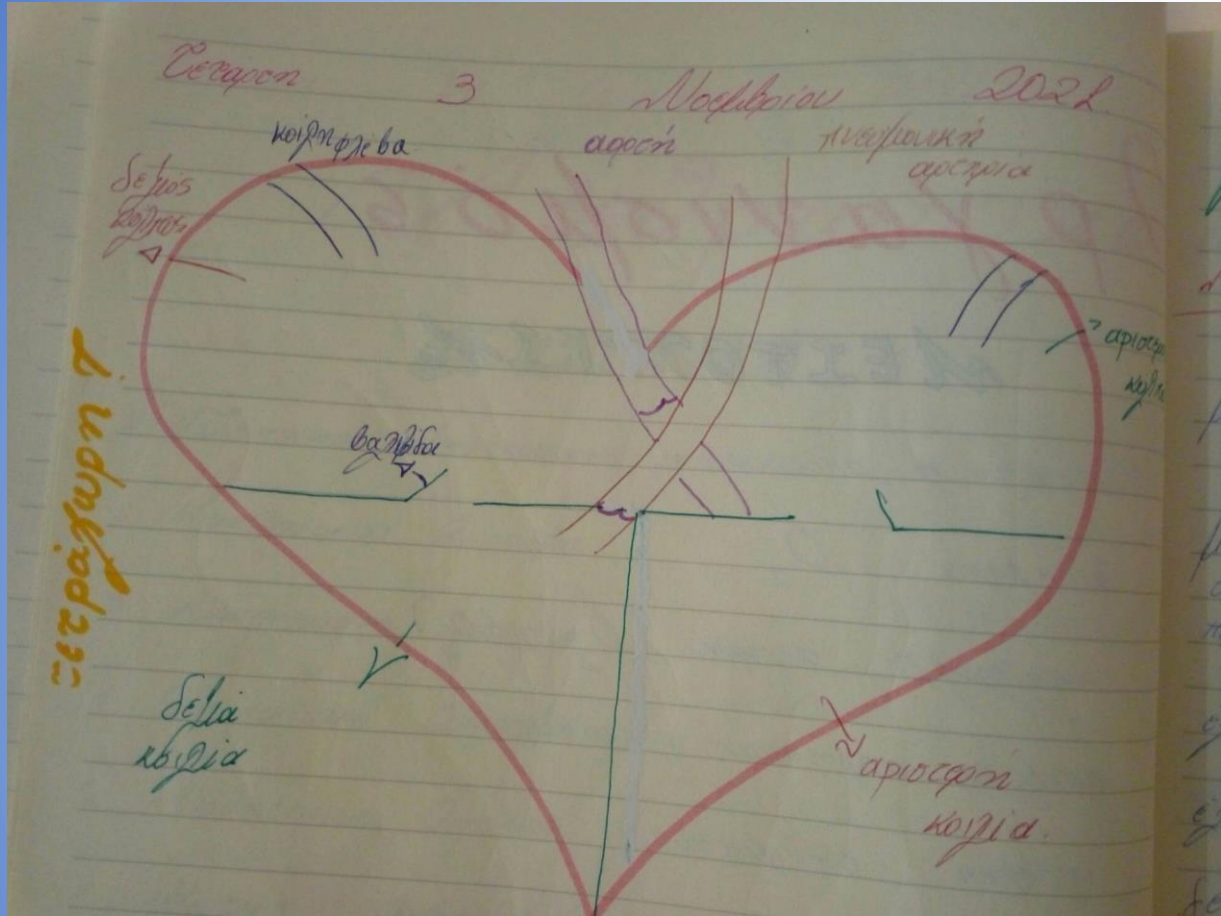 Τεταρτη 3 Νοεμβριου 2021
κοιλη φλεβα
αορτή
πνευμονική
αρτηρια
δεξιός
κολπος
αριστερ
κολπο
βαλβιδα
τετράχωρη ?
δεξιά
κοιλία
αριστερή
κοιλία.